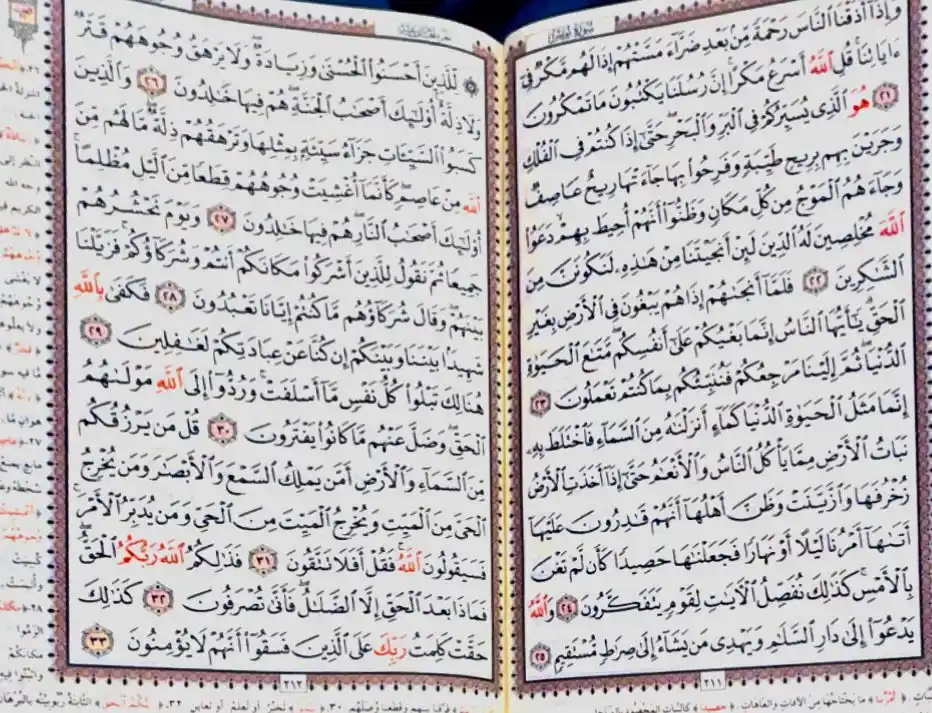 سورة يونس
وَإِذَآ أَذَقْنَا ٱلنَّاسَ رَحْمَةً مِّنۢ بَعْدِ ضَرَّآءَ مَسَّتْهُمْ إِذَا لَهُم مَّكْرٌ فِىٓ
ءَايَاتِنَا ۚ قُلِ ٱللَّهُ أَسْرَعُ مَكْرًا ۚ إِنَّ رُسُلَنَا يَكْتُبُونَ مَا تَمْكُرُونَ
٢١ هُوَ ٱلَّذِى يُسَيِّرُكُمْ فِى ٱلْبَرِّ وَٱلْبَحْرِ ۖ حَتَّىٰٓ إِذَا كُنتُمْ فِى ٱلْفُلْكِ
وَجَرَيْنَ بِهِم بِرِيحٍ طَيِّبَةٍ وَفَرِحُوا۟ بِهَا جَآءَتْهَا رِيحٌ عَاصِفٌ
وَجَآءَهُمُ ٱلْمَوْجُ مِن كُلِّ مَكَانٍ وَظَنُّوٓا۟ أَنَّهُمْ أُحِيطَ بِهِمْ ۙ دَعَوُا۟
ٱللَّهَ مُخْلِصِينَ لَهُ ٱلدِّينَ لَئِنْ أَنجَيْتَنَا مِنْ هَـٰذِهِۦ لَنَكُونَنَّ مِنَ
ٱلشَّـٰكِرِينَ ٢٢ فَلَمَّآ أَنجَىٰهُمْ إِذَا هُمْ يَبْغُونَ فِى ٱلْأَرْضِ بِغَيْرِ
ٱلْحَقِّ ۗ يَـٰٓأَيُّهَا ٱلنَّاسُ إِنَّمَا بَغْيُكُمْ عَلَىٰٓ أَنفُسِكُم ۖ مَّتَـٰعَ ٱلْحَيَوٰةِ
ٱلدُّنْيَا ۖ ثُمَّ إِلَيْنَا مَرْجِعُكُمْ فَنُنَبِّئُكُم بِمَا كُنتُمْ تَعْمَلُونَ ٢٣
إِنَّمَا مَثَلُ ٱلْحَيَوٰةِ ٱلدُّنْيَا كَمَآءٍ أَنزَلْنَـٰهُ مِنَ ٱلسَّمَآءِ فَٱخْتَلَطَ بِهِۦ
نَبَاتُ ٱلْأَرْضِ مِمَّا يَأْكُلُ ٱلنَّاسُ وَٱلْأَنْعَـٰمُ حَتَّىٰٓ إِذَآ أَخَذَتِ ٱلْأَرْضُ
زُخْرُفَهَا وَٱزَّيَّنَتْ وَظَنَّ أَهْلُهَآ أَنَّهُمْ قَـٰدِرُونَ عَلَيْهَآ
أَتَىٰهَآ أَمْرُنَا لَيْلًا أَوْ نَهَارًا فَجَعَلْنَـٰهَا حَصِيدًا كَأَن لَّمْ تَغْنَ
بِٱلْأَمْسِ ۚ كَذَٰلِكَ نُفَصِّلُ ٱلْـَٔايَـٰتِ لِقَوْمٍ يَتَفَكَّرُونَ ٢٤ وَٱللَّهُ
يَدْعُوٓا۟ إِلَىٰ دَارِ ٱلسَّلَـٰمِ وَيَهْدِى مَن يَشَآءُ إِلَىٰ صِرَٰطٍ مُّسْتَقِيمٍ ٢٥
٢١١
۞ لِّلَّذِينَ أَحْسَنُوا۟ ٱلْحُسْنَىٰ وَزِيَادَةٌ ۖ وَلَا يَرْهَقُ وُجُوهَهُمْ قَتَرٌ
وَلَا ذِلَّةٌ ۚ أُو۟لَـٰٓئِكَ أَصْحَـٰبُ ٱلْجَنَّةِ ۖ هُمْ فِيهَا خَـٰلِدُونَ ٢٦ وَٱلَّذِينَ
كَسَبُوا۟ ٱلسَّيِّـَٔاتِ جَزَآءُ سَيِّئَةٍۭ بِمِثْلِهَا وَتَرْهَقُهُمْ ذِلَّةٌ ۖ مَّا لَهُم مِّنَ
ٱللَّهِ مِنْ عَاصِمٍ ۖ كَأَنَّمَآ أُغْشِيَتْ وُجُوهُهُمْ قِطَعًا مِّنَ ٱلَّيْلِ مُظْلِمًا ۚ
أُو۟لَـٰٓئِكَ أَصْحَـٰبُ ٱلنَّارِ ۖ هُمْ فِيهَا خَـٰلِدُونَ ٢٧ وَيَوْمَ نَحْشُرُهُمْ
جَمِيعًا ثُمَّ نَقُولُ لِلَّذِينَ أَشْرَكُوا۟ مَكَانَكُمْ أَنتُمْ وَشُرَكَآؤُكُمْ ۚ فَزَيَّلْنَا
بَيْنَهُمْ ۖ وَقَالَ شُرَكَآؤُهُم مَّا كُنتُمْ إِيَّانَا تَعْبُدُونَ ٢٨ فَكَفَىٰ بِٱللَّهِ
شَهِيدًۢا بَيْنَنَا وَبَيْنَكُمْ إِن كُنَّا عَنْ عِبَادَتِكُمْ لَغَـٰفِلِينَ ٢٩
هُنَالِكَ تَبْلُوا۟ كُلُّ نَفْسٍ مَّآ أَسْلَفَتْ ۚ وَرُدُّوٓا۟ إِلَى ٱللَّهِ مَوْلَىٰهُمُ
ٱلْحَقِّ ۖ وَضَلَّ عَنْهُم مَّا كَانُوا۟ يَفْتَرُونَ ٣٠ قُلْ مَن يَرْزُقُكُم
مِّنَ ٱلسَّمَآءِ وَٱلْأَرْضِ أَمَّن يَمْلِكُ ٱلسَّمْعَ وَٱلْأَبْصَـٰرَ وَمَن يُخْرِجُ
ٱلْحَىَّ مِنَ ٱلْمَيِّتِ وَيُخْرِجُ ٱلْمَيِّتَ مِنَ ٱلْحَىِّ وَمَن يُدَبِّرُ ٱلْأَمْرَ ۚ
فَسَيَقُولُونَ ٱللَّهُ ۚ فَقُلْ أَفَلَا تَتَّقُونَ ٣١ فَذَٰلِكُمُ ٱللَّهُ رَبُّكُمُ ٱلْحَقُّ ۖ
فَمَاذَا بَعْدَ ٱلْحَقِّ إِلَّا ٱلضَّلَـٰلُ ۖ فَأَنَّىٰ تُصْرَفُونَ ٣٢ كَذَٰلِكَ
حَقَّتْ كَلِمَتُ رَبِّكَ عَلَى ٱلَّذِينَ فَسَقُوٓا۟ أَنَّهُمْ لَا يُؤْمِنُونَ ٣٣
٢١٢